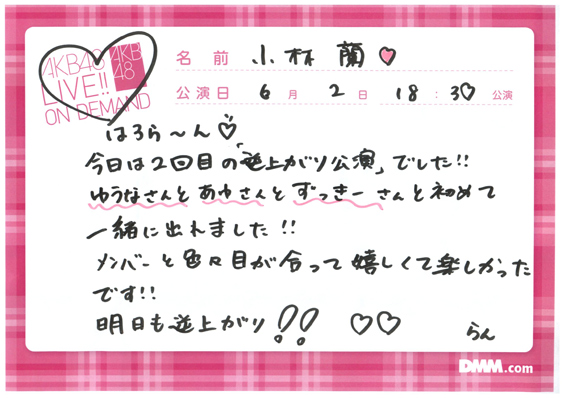 AKB48
LIVE!!
ON DEMAND
AKB
48
名前 小林蘭♡
公演日 6月 2日 18:30公演
はろら〜ん♡
今日は2回目の「逆上がり公演」でした!!
ゆうなさんとあやさんとずっきーさんと初めて
一緒に出れました!!
メンバーと色々目が合って嬉しくて楽しかった
です!!
明日も逆上がり!! ♡♡
らん
DMM.com